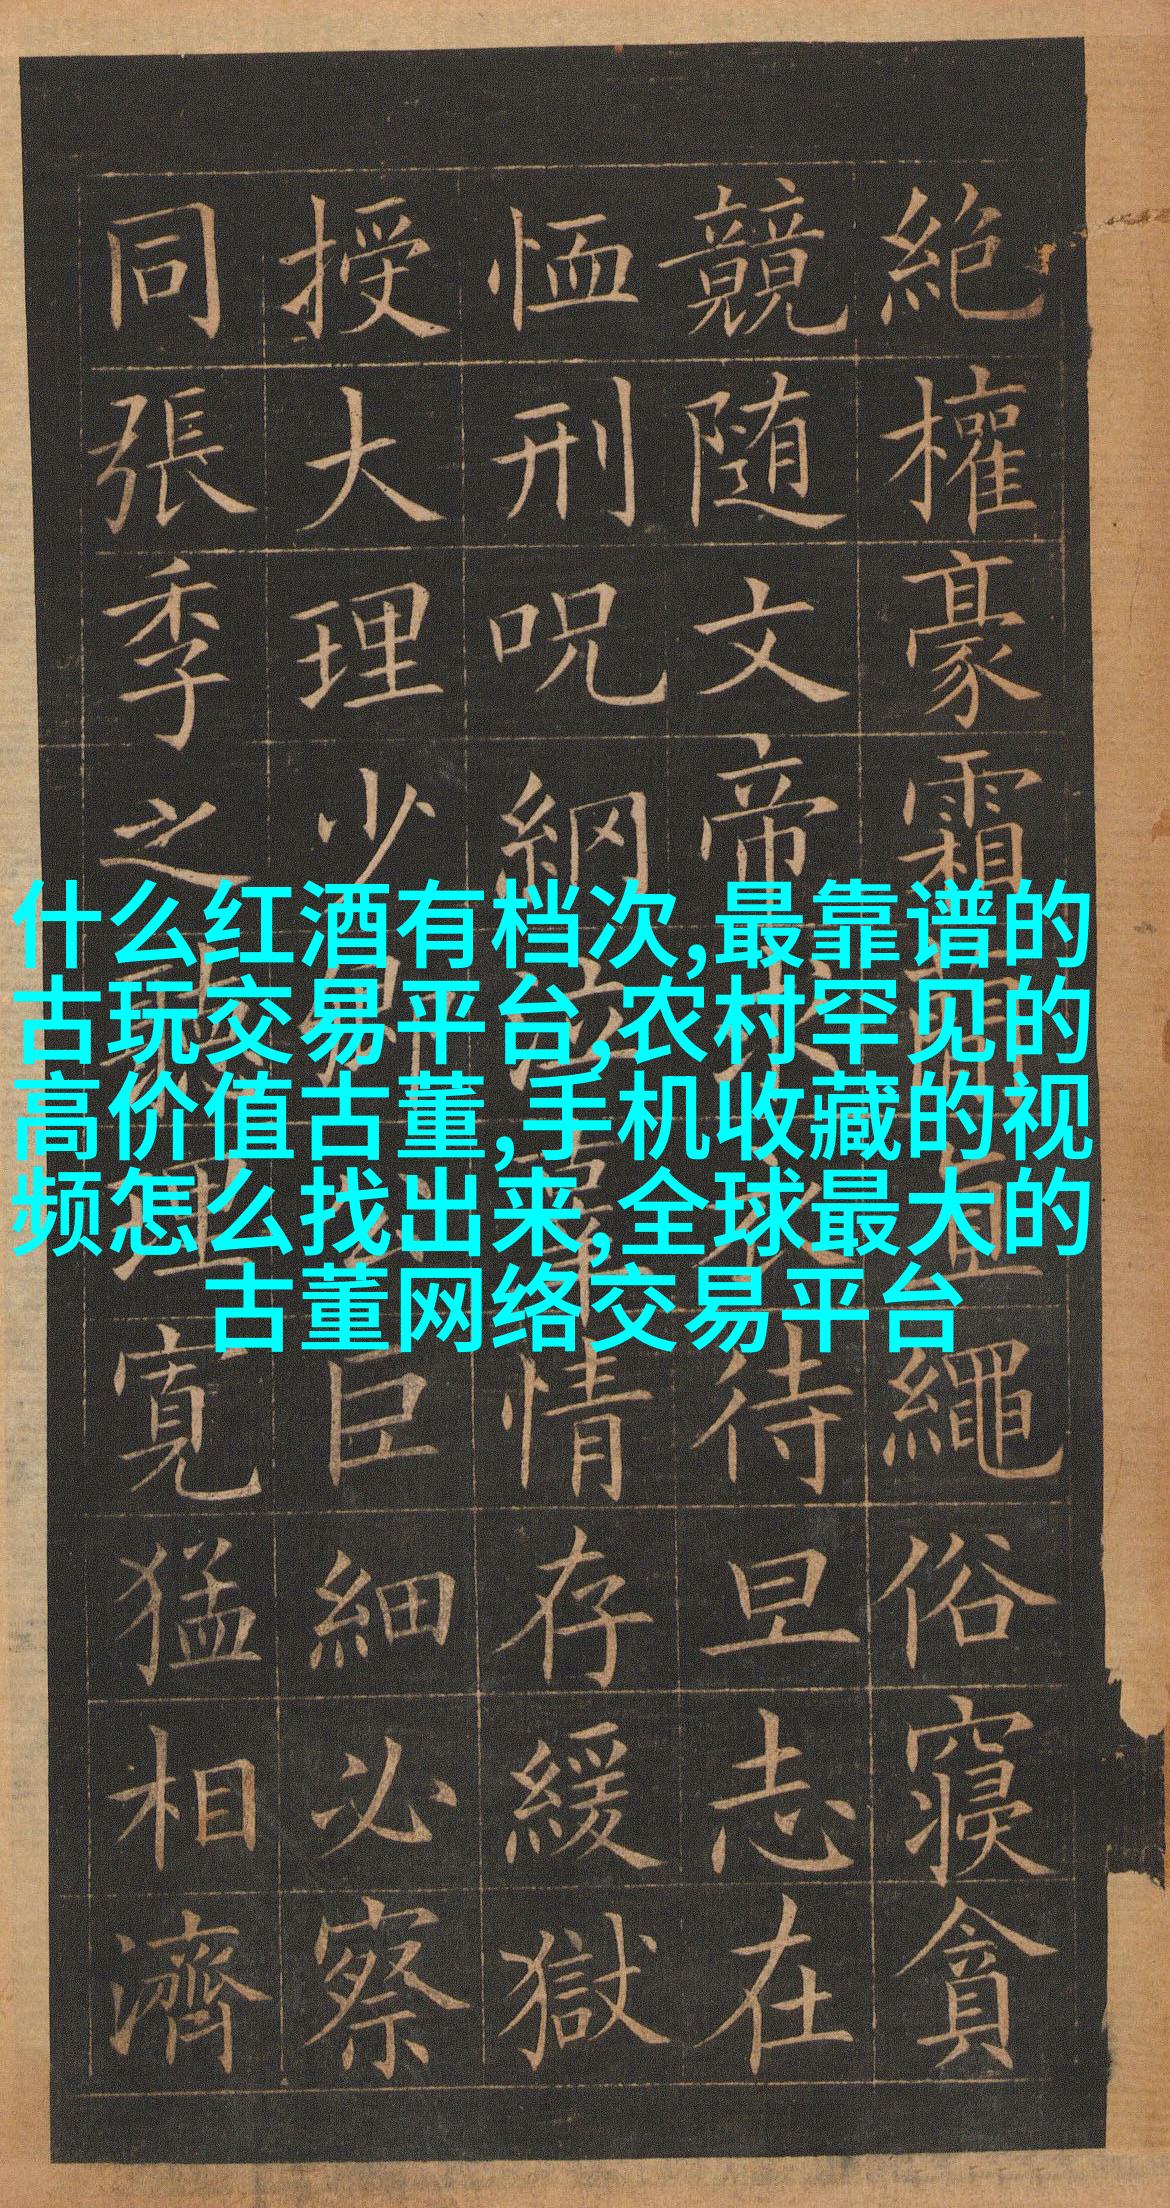 絶權豪霜直繩俗寢貪
競随文帝求衣待旦志在
恤刑呪網泣辜情存緩獄
授大理少卿臣細必察
同張季之聽理寛猛相濟
什么红酒有档次,最靠谱的
古玩交易平台,农村罕见的
高价值古董,手机收藏的视
频怎么找出来,全球最大的
古董网络交易平台